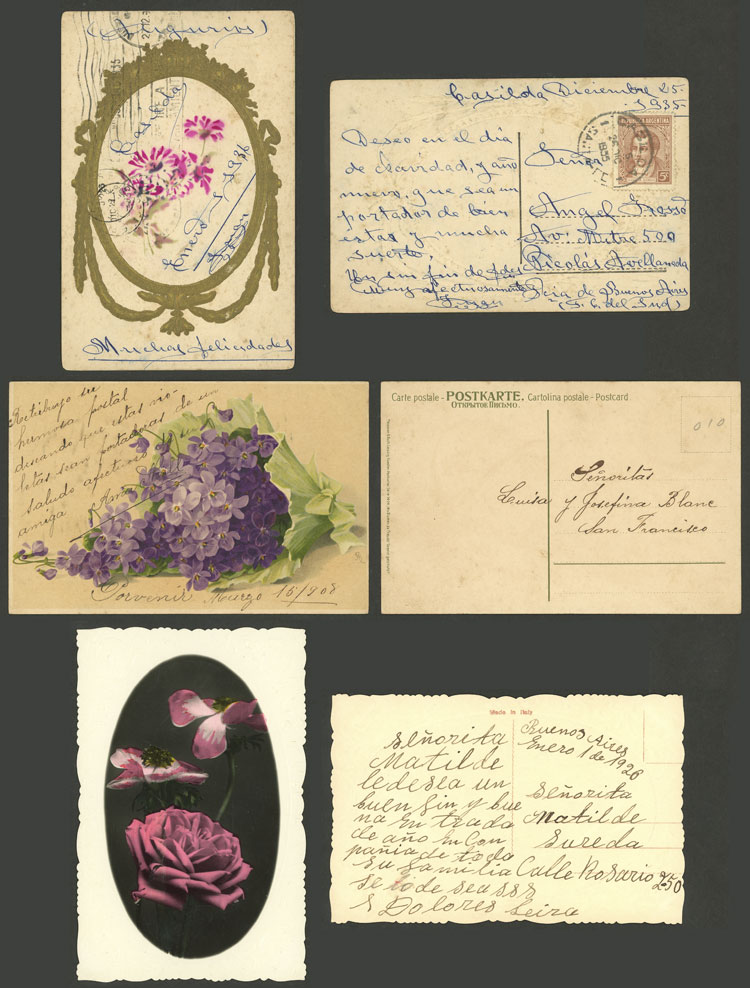 (Augurios)
Casilda
Enero 1 1936
Muchas felicidades
Casilda Diciembre 25
1935
Deseo en el día
de navidad, y año
nuevo, que sea un
portador de bien
estar y mucha
suerte,
Un sin fin de
muy afectuosamente
REPUBLICA ARGENTINA
5c
Señor
Angel Grosso
Av. Mitre 500
Nicolás Avellaneda
Pcia de Buenos Aires
(F. C. del Sud)
Retribuyo su
hermosa postal
diseando que estas vio-
letas sean portadoras de un
saludo afectuoso
amiga
Porvenir Marzo 15/908
Carte postale - POSTKARTE. Cartolina postale - Postcard
ОТКРЫТОЕ ПИСЬМО.
010
Señoritas
Luisa y Josefina Blanc
San Francisco
Made in Italy
Señorita
Matilde
le desea un
buen fin y bue
na entrada
de año en Con
pañia de toda
su familia
se io de sea SSS
S Dolores Seira
Buenos Aires
Enero 1 de 1926
Señorita
Matilde
Sureda
Calle Rosario 250